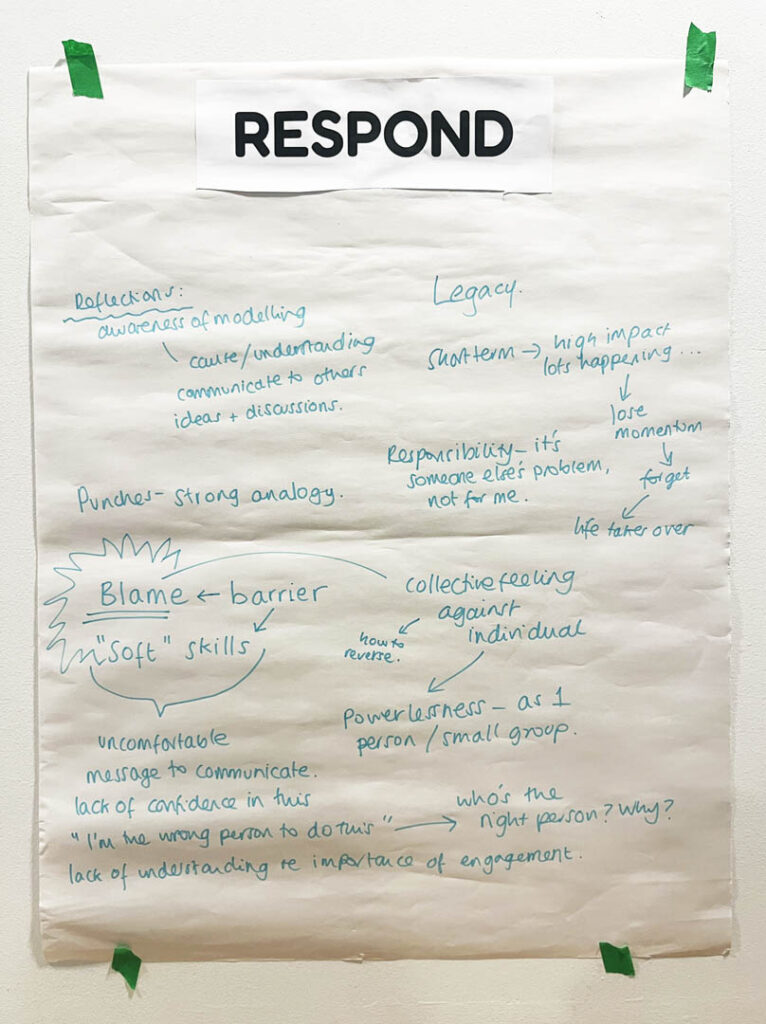 RESPOND
Reflections:
awareness of modelling
cause/understanding
communicate to others
ideas + discussions.
Legacy.
Short term → high impact
lots happening ...
lose
momentum
forget
life takes over
Responsibility - it's
someone else's problem,
not for me.
Punches - strong analogy.
Blame ← barrier
"Soft" skills
collective feeling
against
individual
how to
reverse.
Powerlessness - as 1
person / small group.
uncomfortable
message to communicate.
lack of confidence in this
"I'm the wrong person to do this" → who's the
right person? Why?
lack of understanding re importance of engagement.